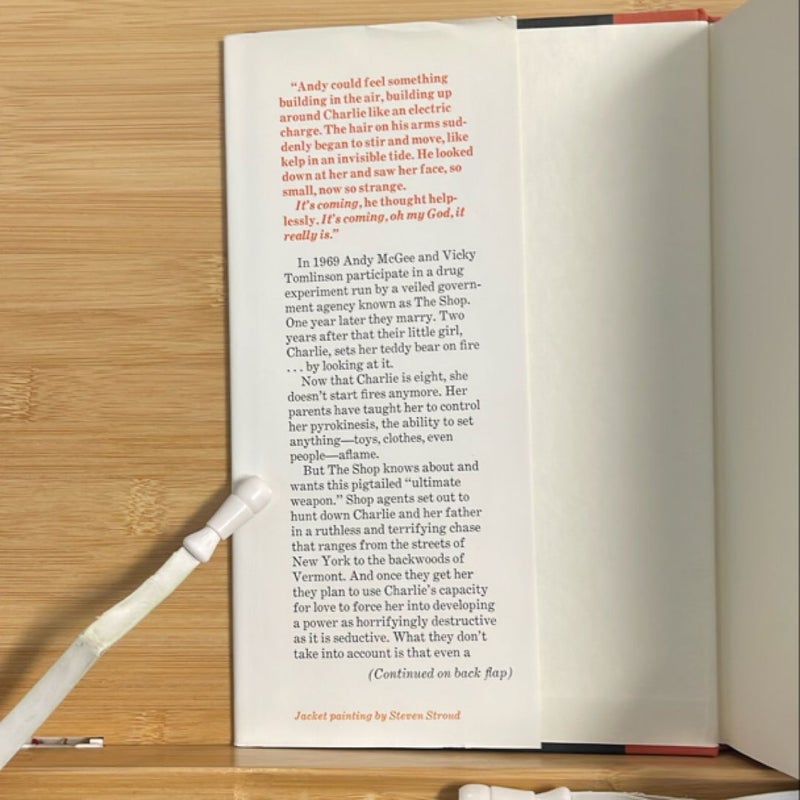 “Andy could feel something
building in the air, building up
around Charlie like an electric
charge. The hair on his arms sud-
denly began to stir and move, like
kelp in an invisible tide. He looked
down at her and saw her face, so
small, now so strange.
It's coming, he thought help-
lessly. It's coming, oh my God, it
really is.”
In 1969 Andy McGee and Vicky
Tomlinson participate in a drug
experiment run by a veiled govern-
ment agency known as The Shop.
One year later they marry. Two
years after that their little girl,
Charlie, sets her teddy bear on fire
. . . by looking at it.
Now that Charlie is eight, she
doesn't start fires anymore. Her
parents have taught her to control
her pyrokinesis, the ability to set
anything—toys, clothes, even
people—aflame.
But The Shop knows about and
wants this pigtailed “ultimate
weapon.” Shop agents set out to
hunt down Charlie and her father
in a ruthless and terrifying chase
that ranges from the streets of
New York to the backwoods of
Vermont. And once they get her
they plan to use Charlie's capacity
for love to force her into developing
a power as horrifyingly destructive
as it is seductive. What they don't
take into account is that even a
(Continued on back flap)
Jacket painting by Steven Stroud